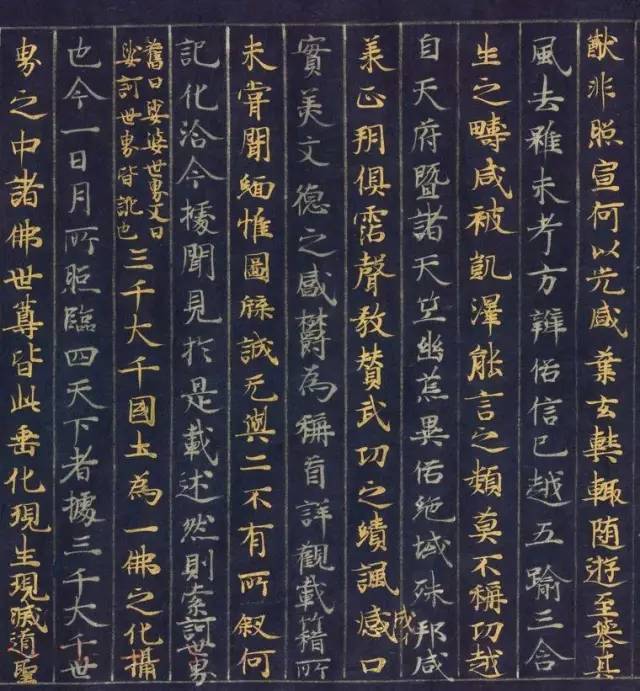 猷非照宣何以光盛業玄奘輙随遊至舉其
風去雖未考方辨俗信已越五踰三含
生之疇咸被凱澤能言之類莫不稱功越
自天府暨諸天竺幽荒異俗絶域殊邦咸
羕正朔俱霑聲教賛武功之績諷感成口
實美文德之盛欝為稱首詳觀載籍所
未甞聞緬惟圖牒誠无與二不有所叙何
記化洽今據聞見於是載述然則索訶世界
舊曰娑婆世界文曰
娑訶世界皆訛也
三千大千國土為一佛之化攝
也今一日月所照臨四天下者據三千大千世
界之中諸佛世尊皆此垂化現生現滅道聖